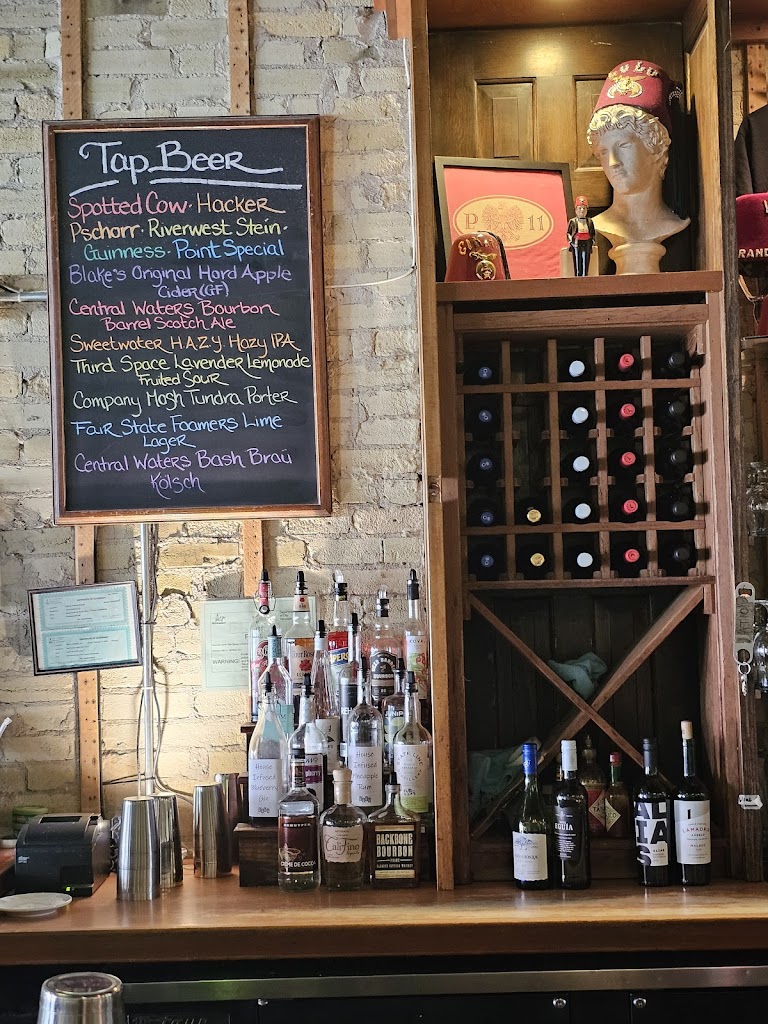 Tap Beer
Spotted Cow · Hacker
Pschorr · Riverwest Stein ·
Guinness · Point Special
Blake's Original Hard Apple
Cider (GF)
Central Waters Bourbon
Barrel Scotch Ale
Sweetwater H.A.Z.Y. Hazy IPA
Third Space Lavender Lemonade
Fruited Sour
Company Mosh Tundra Porter
Fair State Foamers Lime
Lager
Central Waters Bash Braü
Kölsch
P 11
RAND
WARNING
House
Infused
Blueberry
Gin
House
Infused
Pineapple
Rum
CREME DE COCOA
BACKBONE
BOURBON